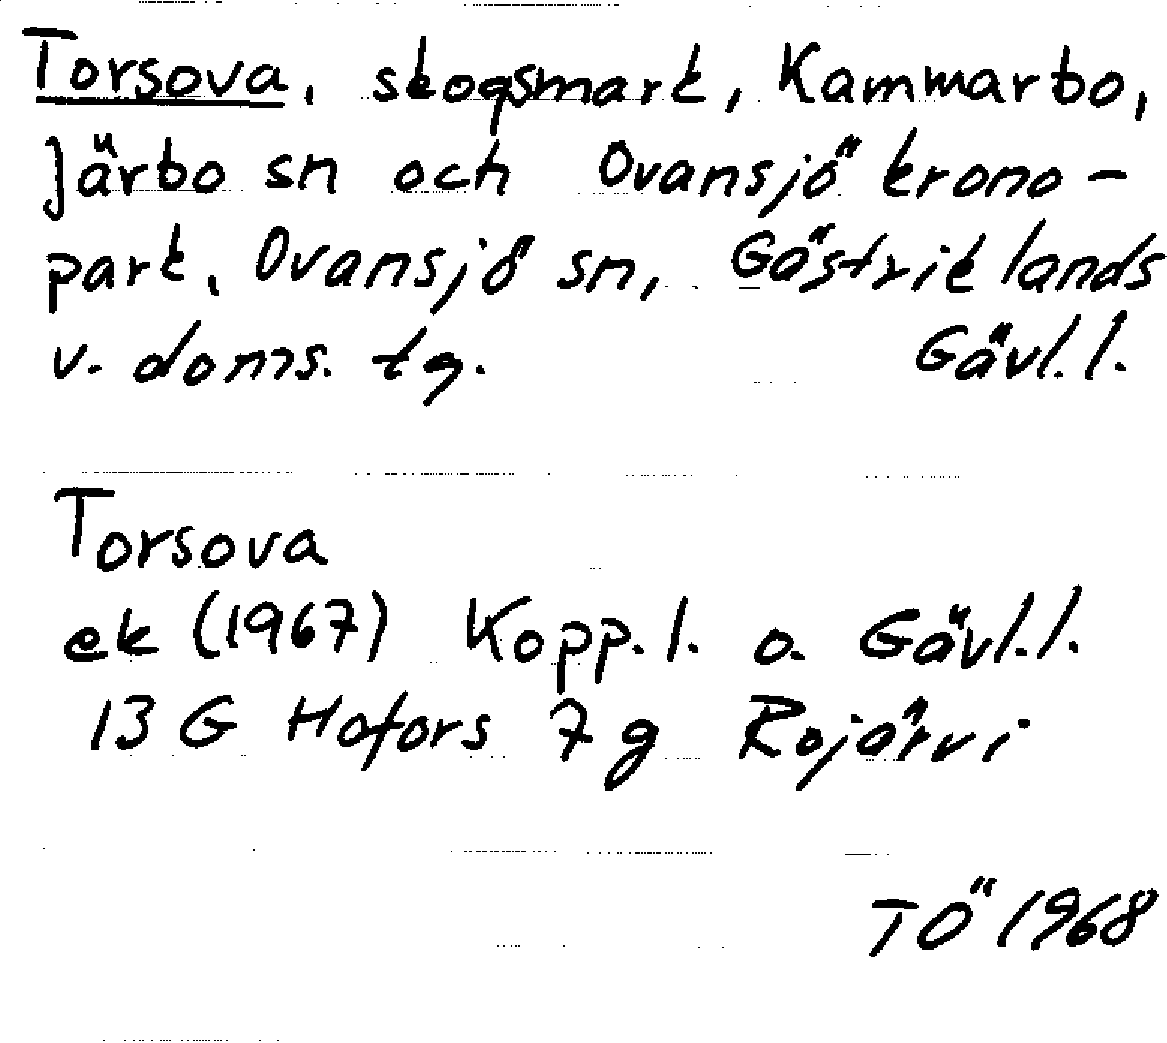 Torsova, skogsmark, Kammarbo,
Järbo sn och Ovansjö krono-
park, Ovansjö sn, Gästriklands
v. doms. tg. Gävl.l.
Torsova
ek (1967) Kopp.l. o. Gävl.l.
13 G Hofors 7 g Rojärvi
TÖ 1968